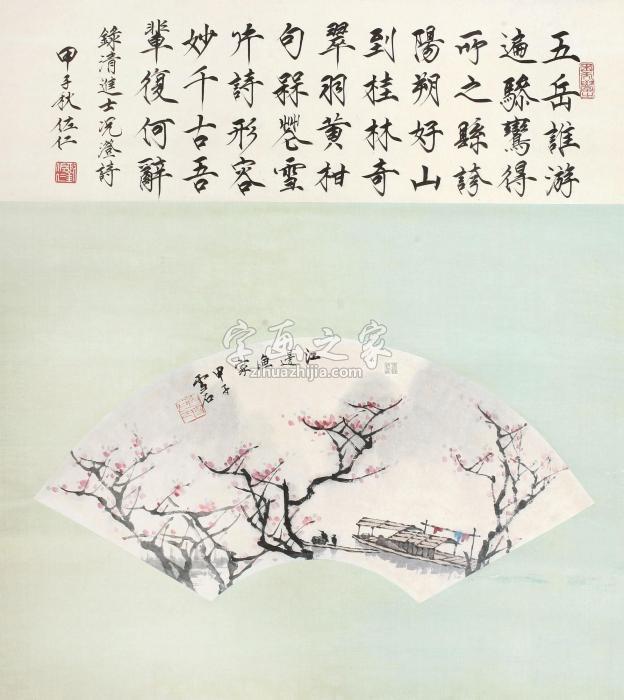 五岳誰游
遍驂鸞得
所之縣誇
陽朔好山
到桂林奇
翠羽黄柑
句槑花雪
片詩形容
妙千古吾
輩復何辭
錄清進士況澄詩
甲子秋位仁
江邊漁家
甲子
雪石
字画之家
zihuazhijia.com